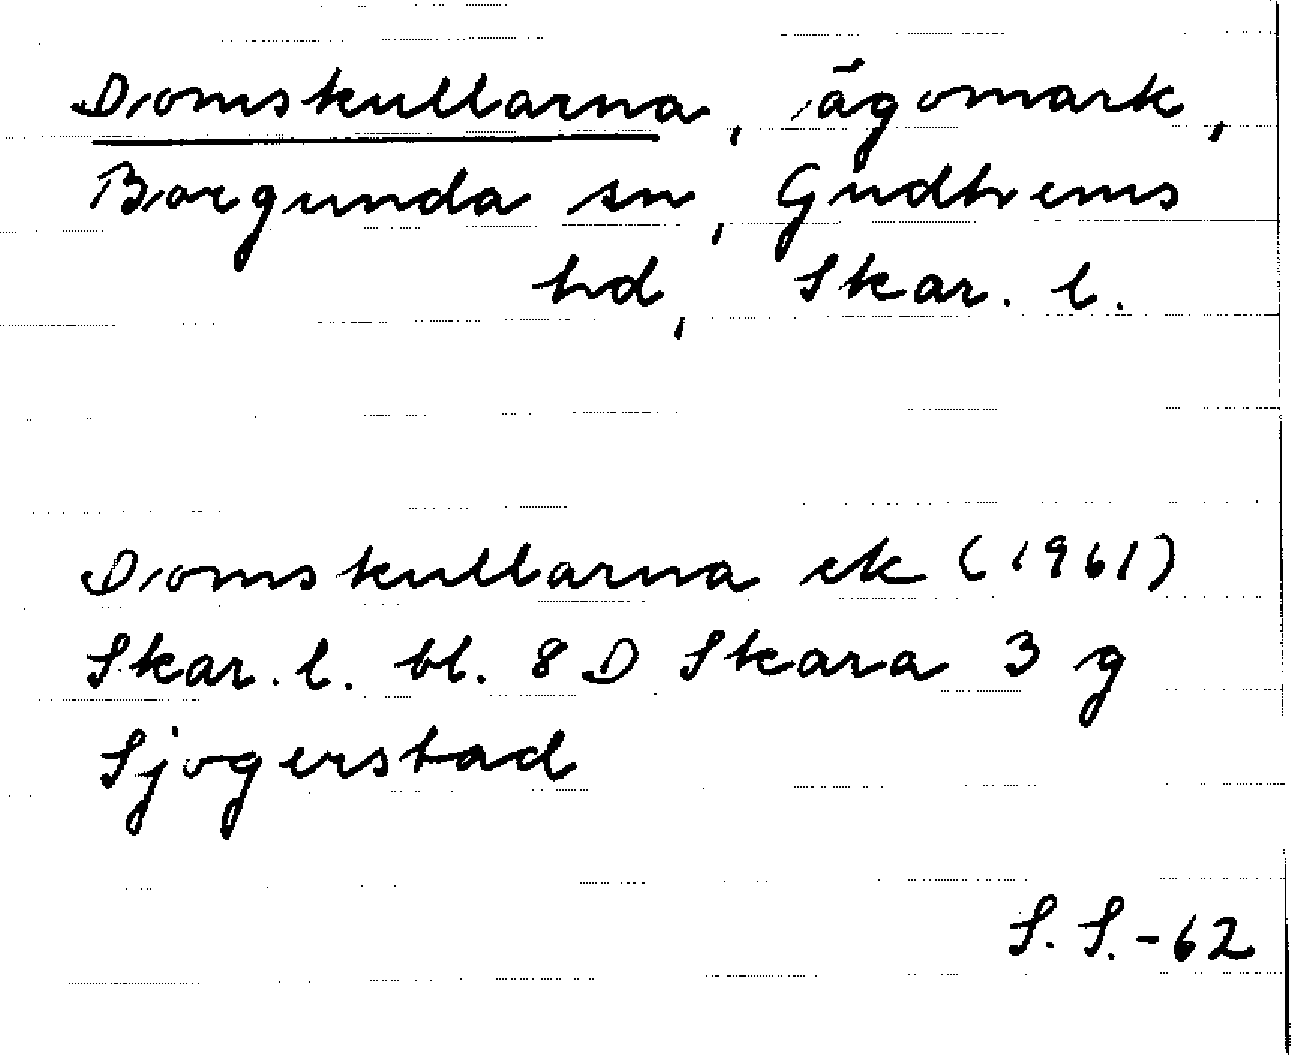 Domskullarna, ägomark,
Borgunda sn, Gudhems
hd, Skar. l.
Domskullarna ek (1961)
Skar. l. bl. 8 D Skara 3 g
Sjogerstad
S. S. -62